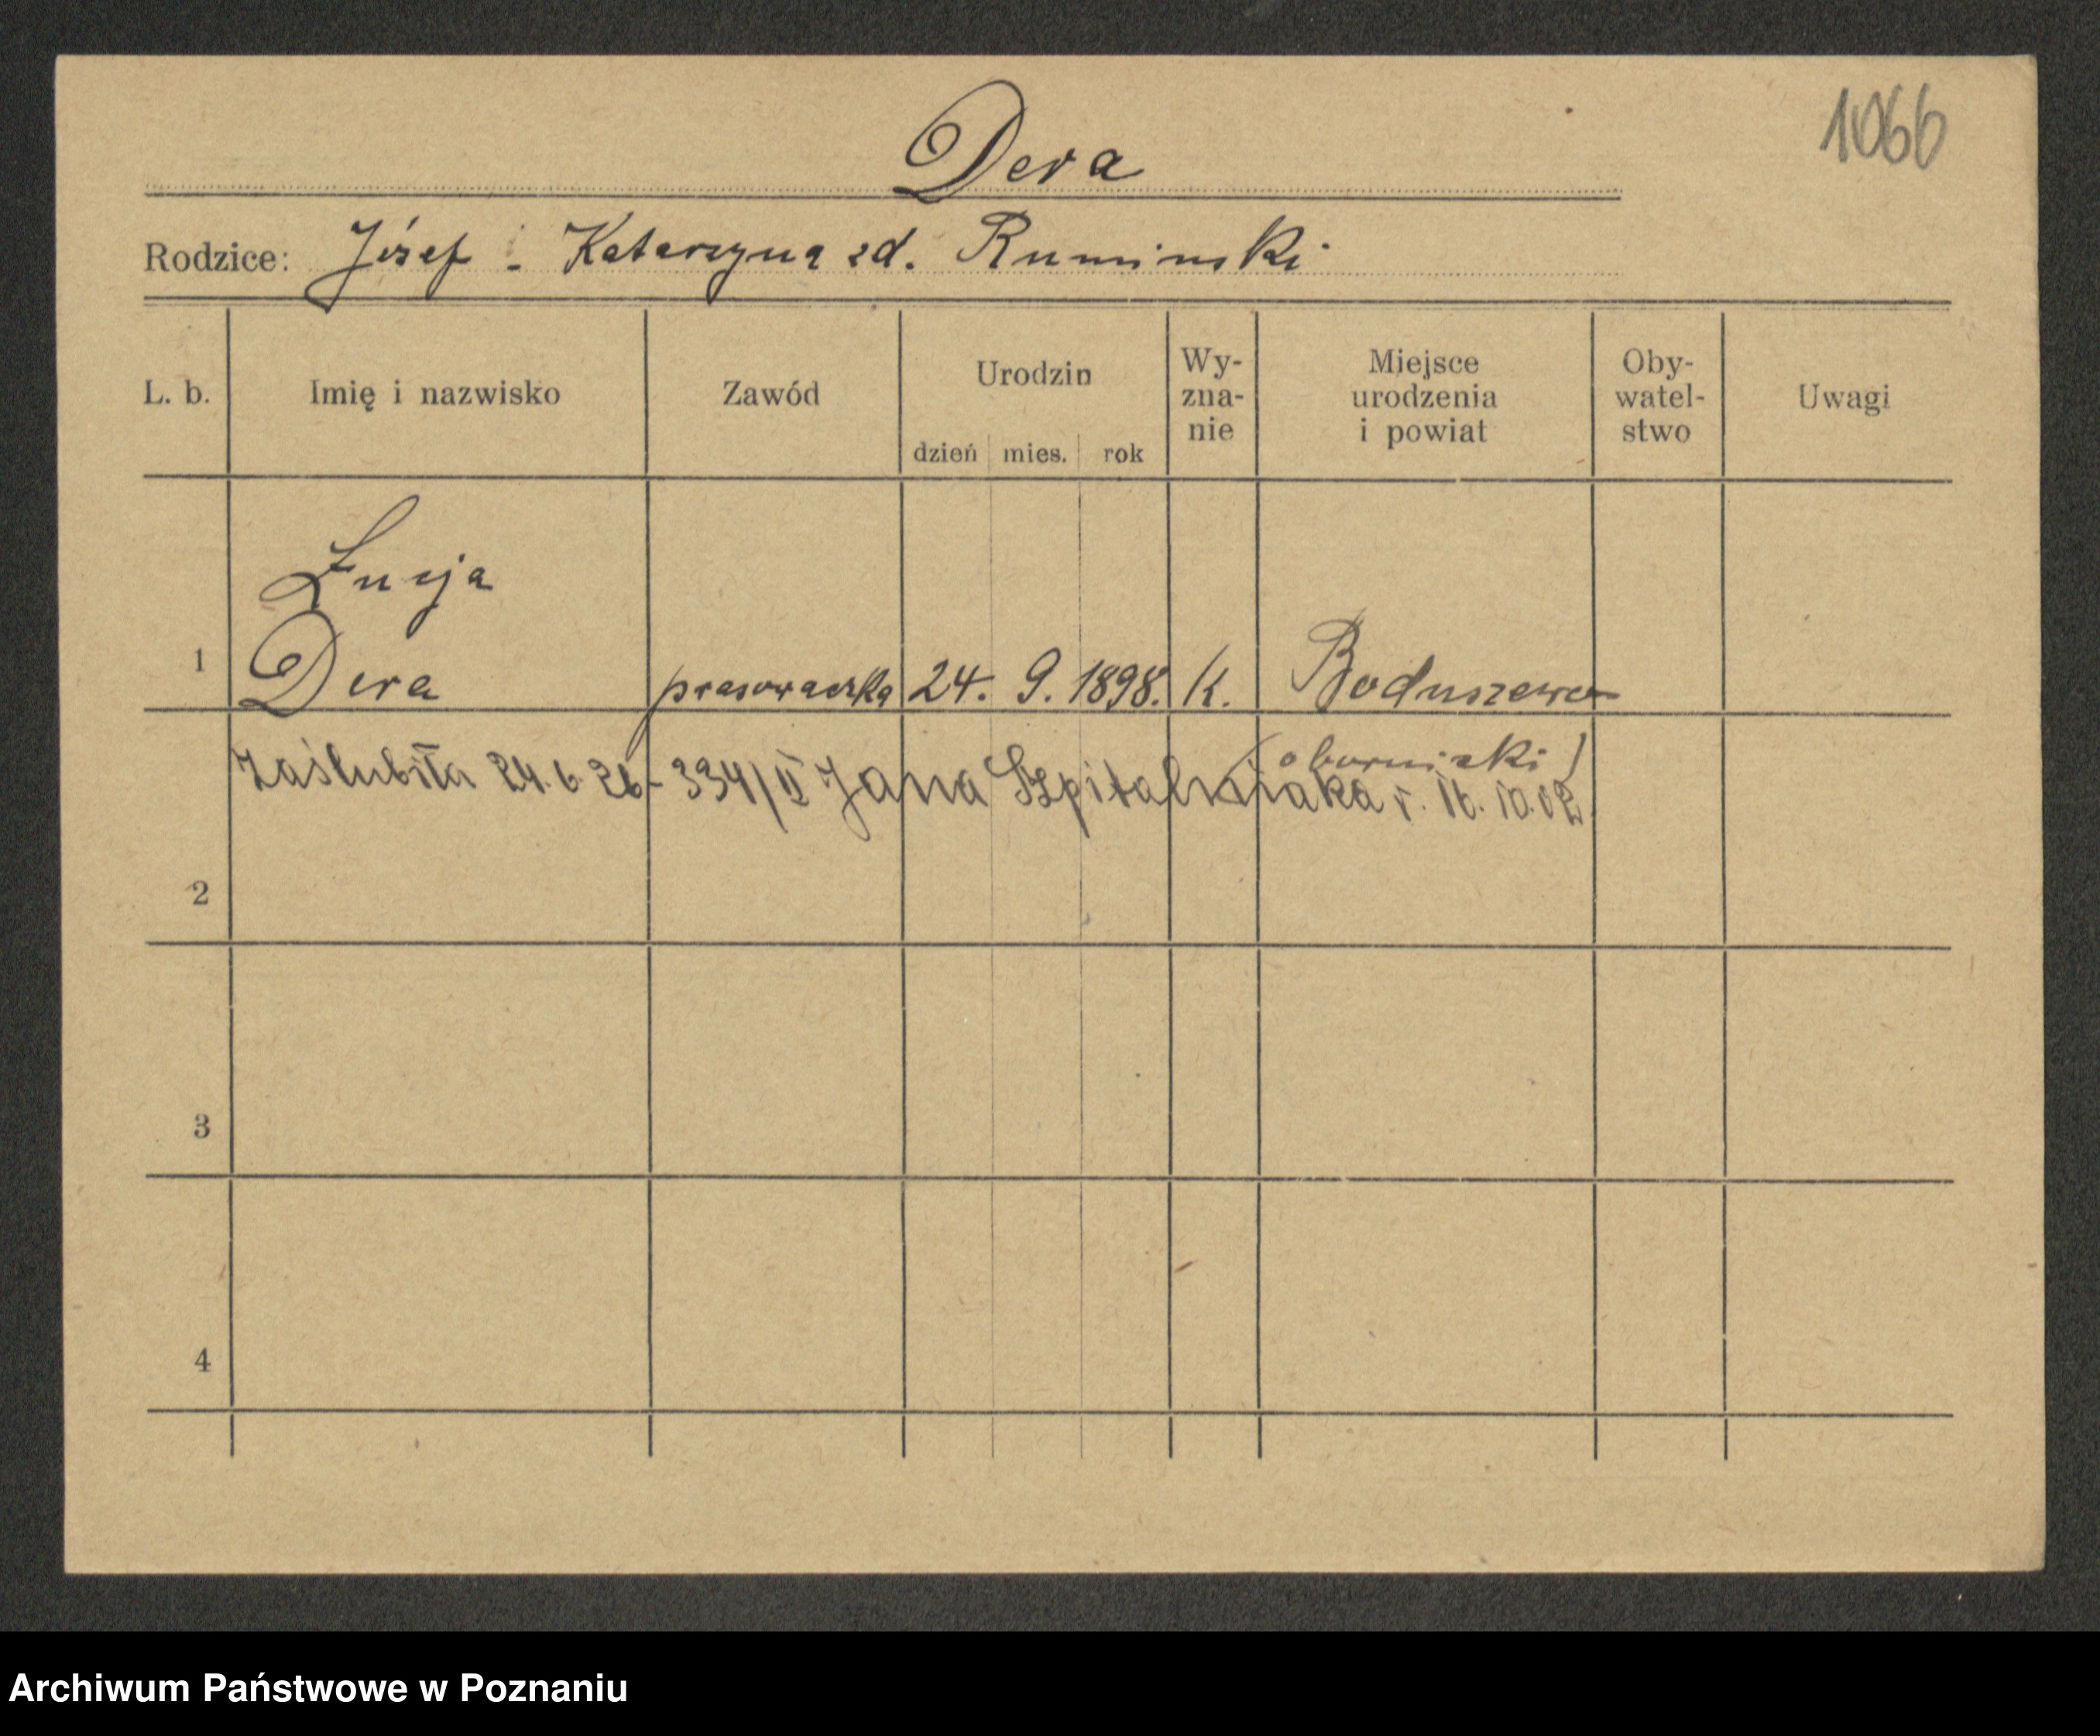 1066
Dera
Rodzice: Józef - Katarzyna zd. Ruminski
L. b. Imię i nazwisko Zawód Urodzin dzień mies. rok Wy-zna-nie Miejsce urodzenia i powiat Oby-watel-stwo Uwagi
Łucja
1 Dera prasowaczka 24. 9. 1898. K. Boduszewo
(obornicki)
Zaślubiła 24.6.26 - 334/II Jana Szpitalniaka r. 16. 10. 02.
2
3
4
Archiwum Państwowe w Poznaniu